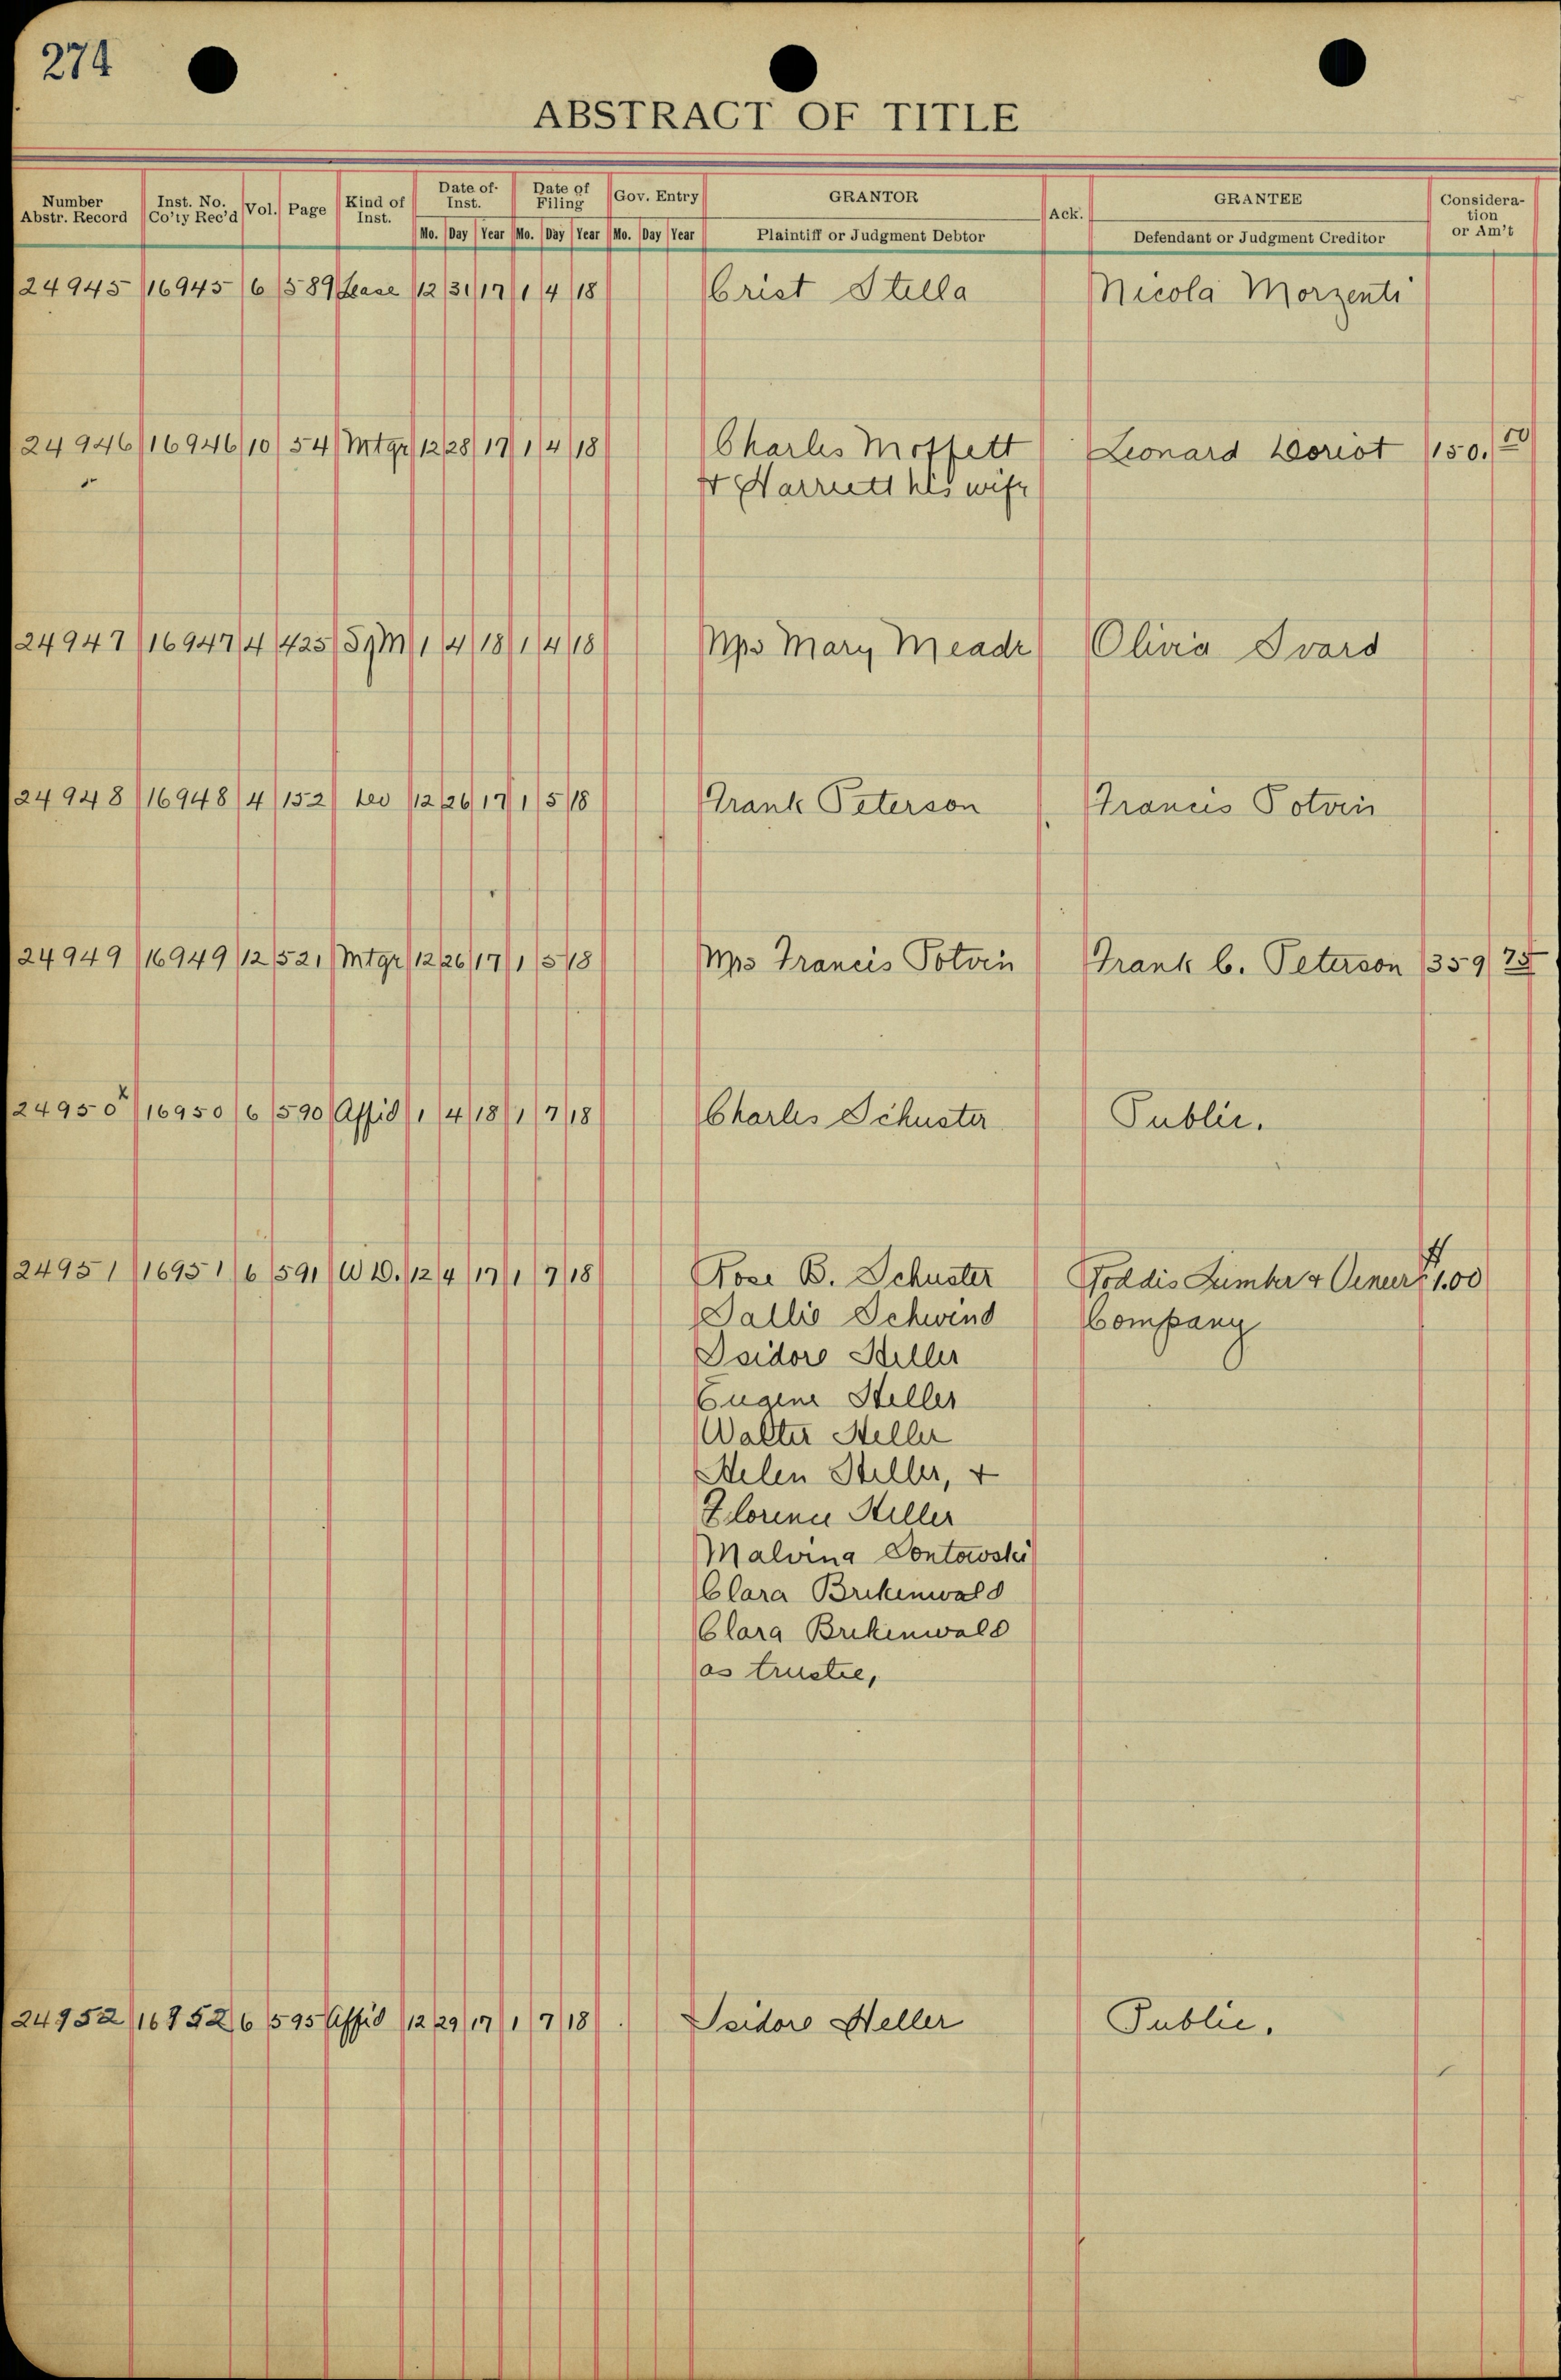 274
ABSTRACT OF TITLE
Number Abstr. Record Inst. No. Co'ty Rec'd Vol. Page Kind of Inst. Date of Inst. Date of Filing Gov. Entry GRANTOR Ack. GRANTEE Consideration or Am't
Mo. Day Year Mo. Day Year Mo. Day Year Plaintiff or Judgment Debtor Defendant or Judgment Creditor
24945 16945 6 589 Lease 12 31 17 1 4 18 Crist Stella Nicola Morzenti
24946 16946 10 54 Mtge 12 28 17 1 4 18 Charles Moffett Leonard Doriot 150.00
& Harriett his wife
24947 16947 4 425 1 4 18 1 4 18 Mrs Mary Meade Olivia Svard
24948 16948 4 152 12 26 17 1 5 18 Frank Peterson Francis Potvin
24949 16949 12 521 Mtge 12 26 17 1 5 18 Mrs Francis Potvin Frank C. Peterson 359 75
24950 x 16950 6 590 Affid 1 4 18 1 7 18 Charles Schuster Public.
24951 16951 6 591 W D. 12 4 17 1 7 18 Rose B. Schuster Foddis Lumber & Veneer $1.00
Sallie Schwind Company
Isidore Heller
Eugene Heller
Walter Heller
Helen Heller, &
Florence Heller
Malvina Sontowski
Clara Brikenwald
Clara Brikenwald
as trustee,
24952 16952 6 595 Affid 12 29 17 1 7 18 Isidore Heller Public.